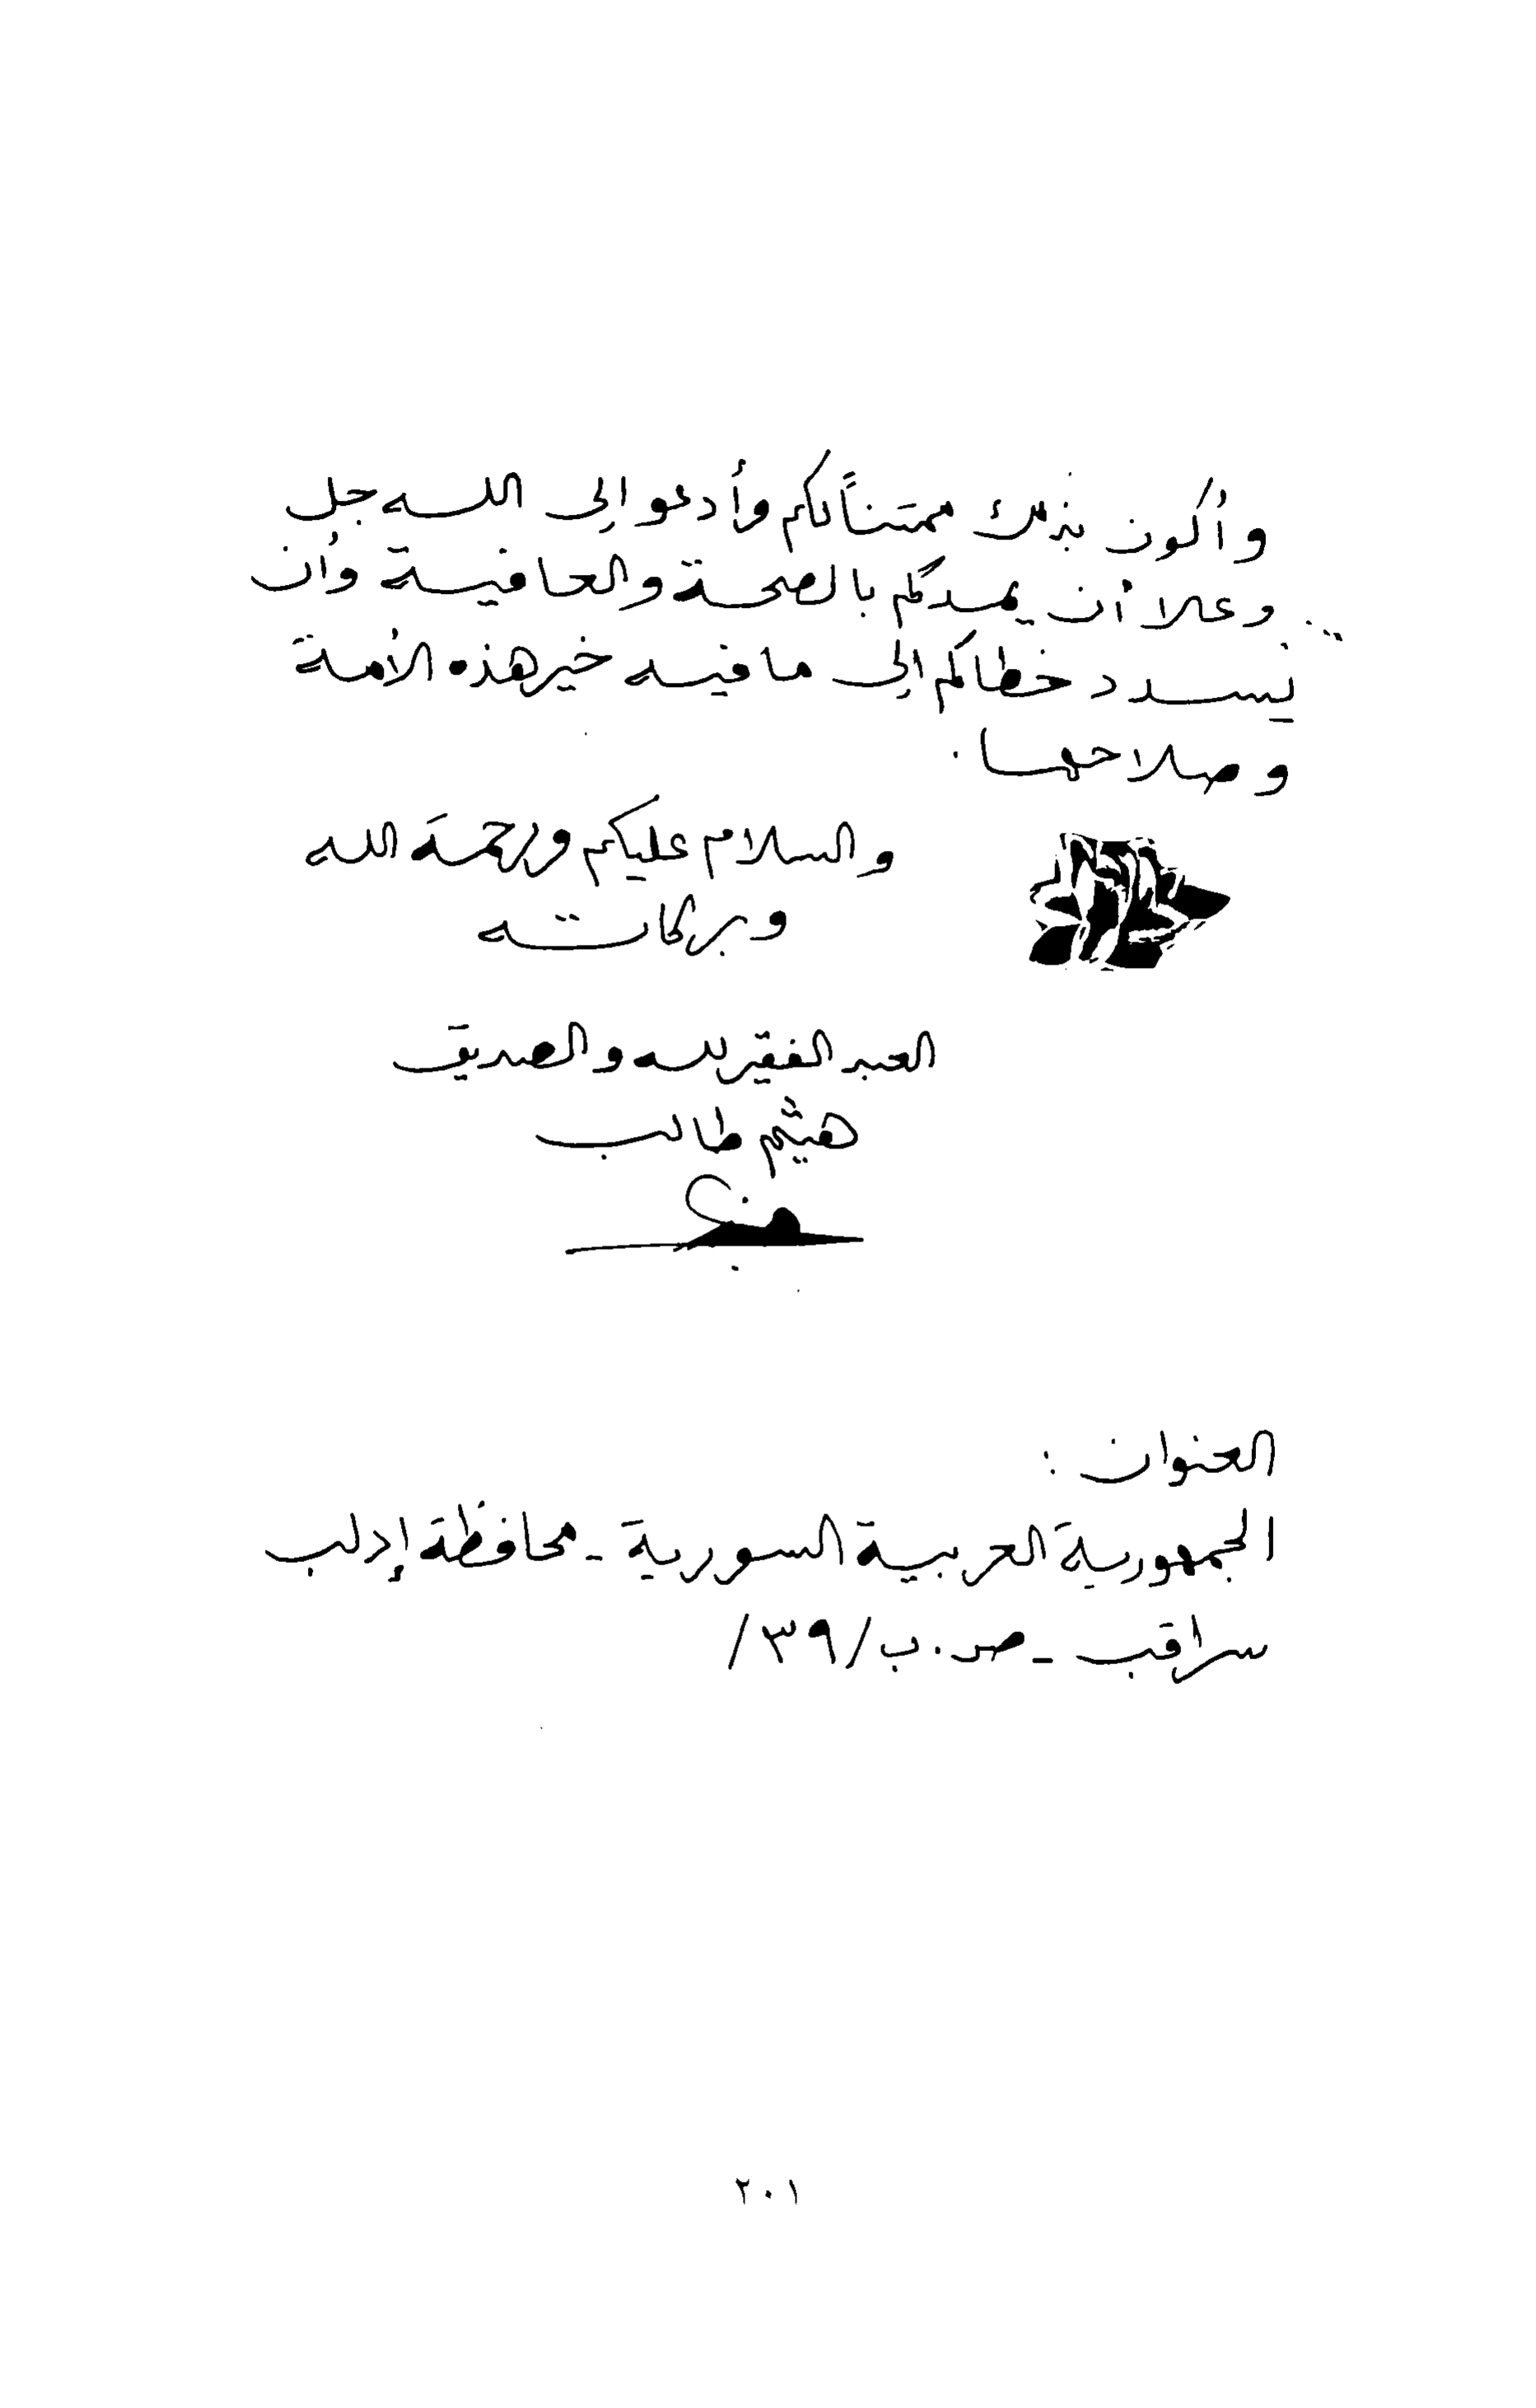 وأكون بذلك ممتناً لكم وأدعو إلى اللـه جل
وعلا أن يمدكم بالصحة والعافيـة وأن
يسدد خطاكم إلى ما فيه خير هذه الأمة
وصلاحها .
والسلام عليكم ورحمة الله
وبركاته
العبد الفقير لله والصديق
هيثم طالب
العنوان :
الجمهورية العربية السورية - محافظة إدلب
سراقب - ص . ب /٣٩/
٢٠١